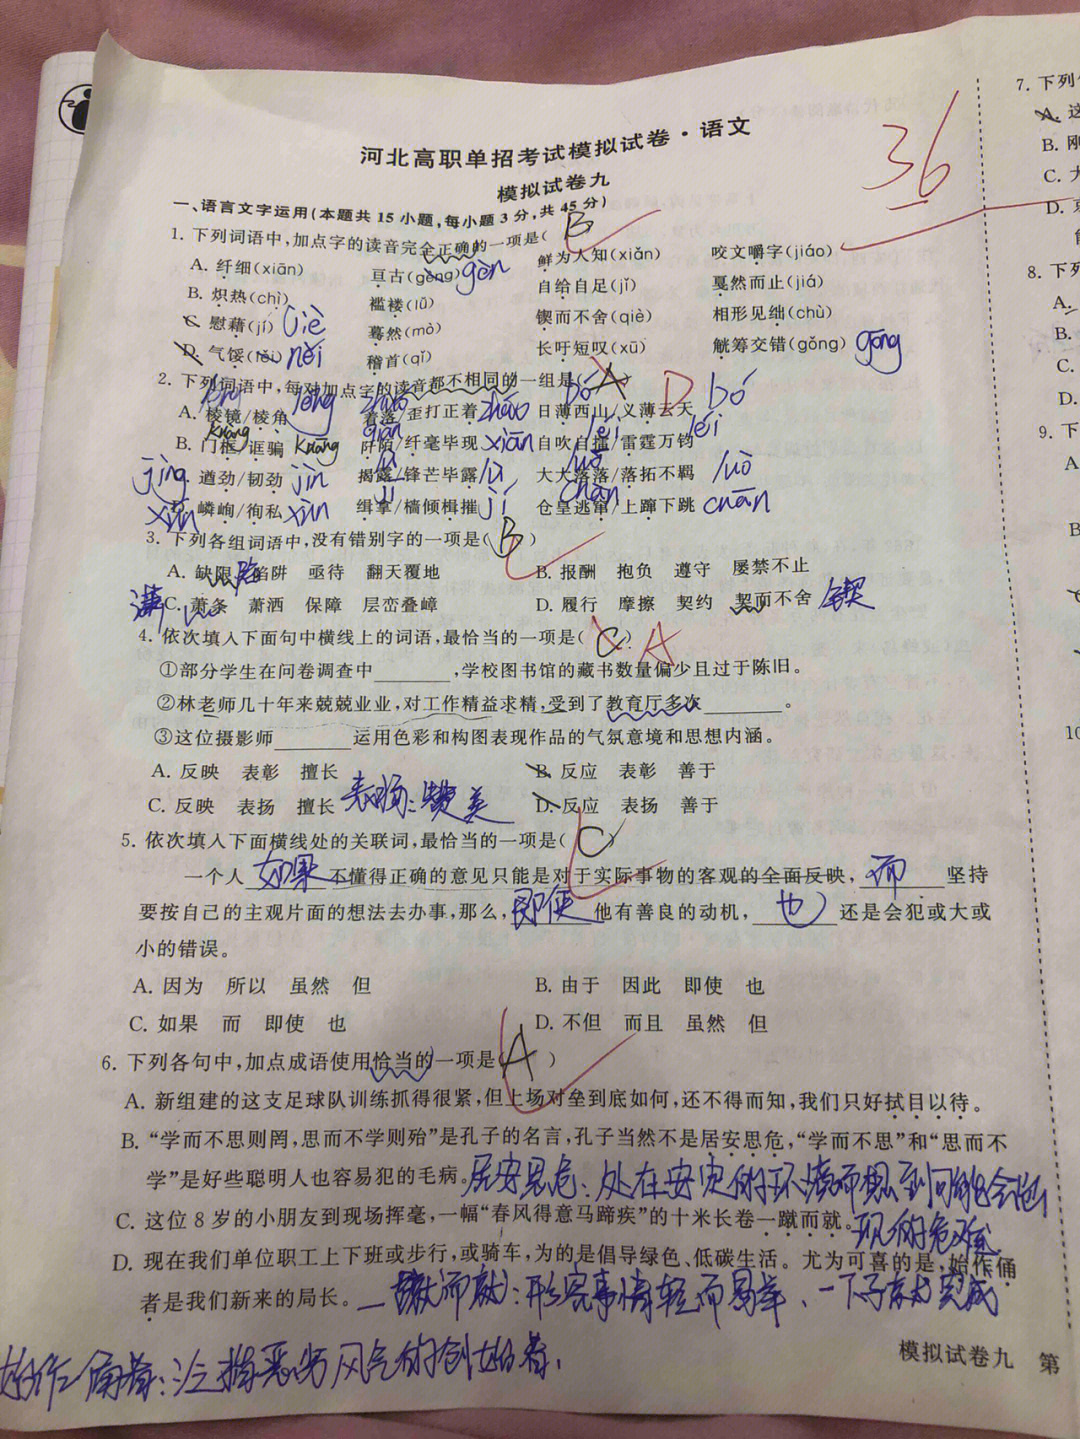 河北高职单招考试模拟试卷·语文
36
模拟试卷九
一、语言文字运用(本题共 15 小题,每小题 3 分,共 45 分)
1. 下列词语中,加点字的读音完全正确的一项是( B
A. 纤细(xiān) 亘古(gèng) gèn 鲜为人知(xiǎn) 咬文嚼字(jiáo)
B. 炽热(chì) 褴褛(lǚ) 自给自足(jǐ) 戛然而止(jiá)
C. 慰藉(jí) jiè 蓦然(mò) 锲而不舍(qiè) 相形见绌(chù)
D. 气馁(lěi) něi 稽首(qǐ) 长吁短叹(xū) 觥筹交错(gǒng) gōng
2. 下列词语中,每对加点字的读音都不相同的一组是( A ) D bó
A. 棱镜/棱角 着落/歪打正着 zháo 日薄西山/义薄云天
B. 门框/诓骗 kuāng 阡陌/纤毫毕现 xiān 自吹自擂/雷霆万钧 léi
jìng 遒劲/韧劲 jìn 揭露/锋芒毕露 大大落落/落拓不羁 luò
嶙峋/徇私 缉拿/樯倾楫摧 jí 仓皇逃窜/上蹿下跳 cuān
3. 下列各组词语中,没有错别字的一项是( B )
A. 缺限 陷 陷阱 亟待 翻天覆地 B. 报酬 抱负 遵守 屡禁不止
C. 萧条 萧洒 保障 层峦叠嶂 D. 履行 摩擦 契约 契而不舍 锲
4. 依次填入下面句中横线上的词语,最恰当的一项是( C ) A
①部分学生在问卷调查中________,学校图书馆的藏书数量偏少且过于陈旧。
②林老师几十年来兢兢业业,对工作精益求精,受到了教育厅多次________。
③这位摄影师________运用色彩和构图表现作品的气氛意境和思想内涵。
A. 反映 表彰 擅长 B. 反应 表彰 善于
C. 反映 表扬 擅长 表扬:赞美 D. 反应 表扬 善于
5. 依次填入下面横线处的关联词,最恰当的一项是( C )
一个人 如果 不懂得正确的意见只能是对于实际事物的客观的全面反映, 而 坚持
要按自己的主观片面的想法去办事,那么, 即便 他有善良的动机, 也 还是会犯或大或
小的错误。
A. 因为 所以 虽然 但 B. 由于 因此 即使 也
C. 如果 而 即使 也 D. 不但 而且 虽然 但
6. 下列各句中,加点成语使用恰当的一项是( A )
A. 新组建的这支足球队训练抓得很紧,但上场对垒到底如何,还不得而知,我们只好拭目以待。
B. “学而不思则罔,思而不学则殆”是孔子的名言,孔子当然不是居安思危,“学而不思”和“思而不
学”是好些聪明人也容易犯的毛病。居安思危:处在安定的环境而想到可能会出
C. 这位 8 岁的小朋友到现场挥毫,一幅“春风得意马蹄疾”的十米长卷一蹴而就。现的危难
D. 现在我们单位职工上下班或步行,或骑车,为的是倡导绿色、低碳生活。尤为可喜的是,始作俑
者是我们新来的局长。一蹴而就:形容事情轻而易举、一下子就完成
始作俑者:泛指恶劣风气的创始者.
模拟试卷九 第
7. 下列
A. 这
B. 刚
C. 大
D.
8. 下列
A.
B.
C.
D.
9. 下
A
B
10